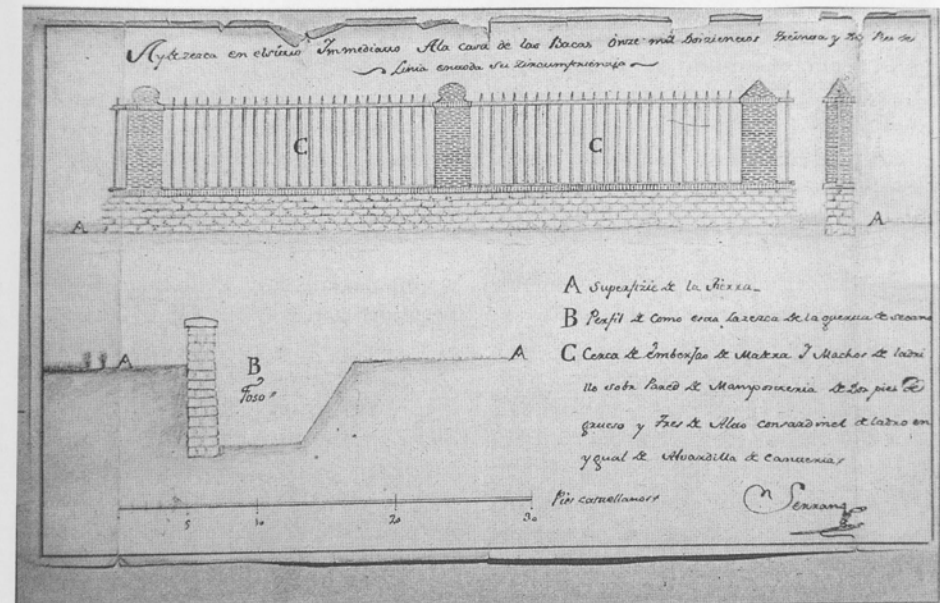 Ay de zerca en el sitio Immediatto A la casa de las Bacas Onze mil Doizienttos Treinta y Dos Pies de
Linia en toda su Zircumferienzia
C
C
A
A
A Superfizie de la Tierra
B Perfil de como esta la zerca de la guerta de secano
C Cerca de Emberjao de Madera Y Machos de ladri
llo sobre Pared de Mamposteria de Dos pies de
grueso y Tres de Alto con sardinel de ladro en
ygual de Alvardilla de Canteria
A
B
Foso
A
5
10
20
30
Pies castellanos
Serrano